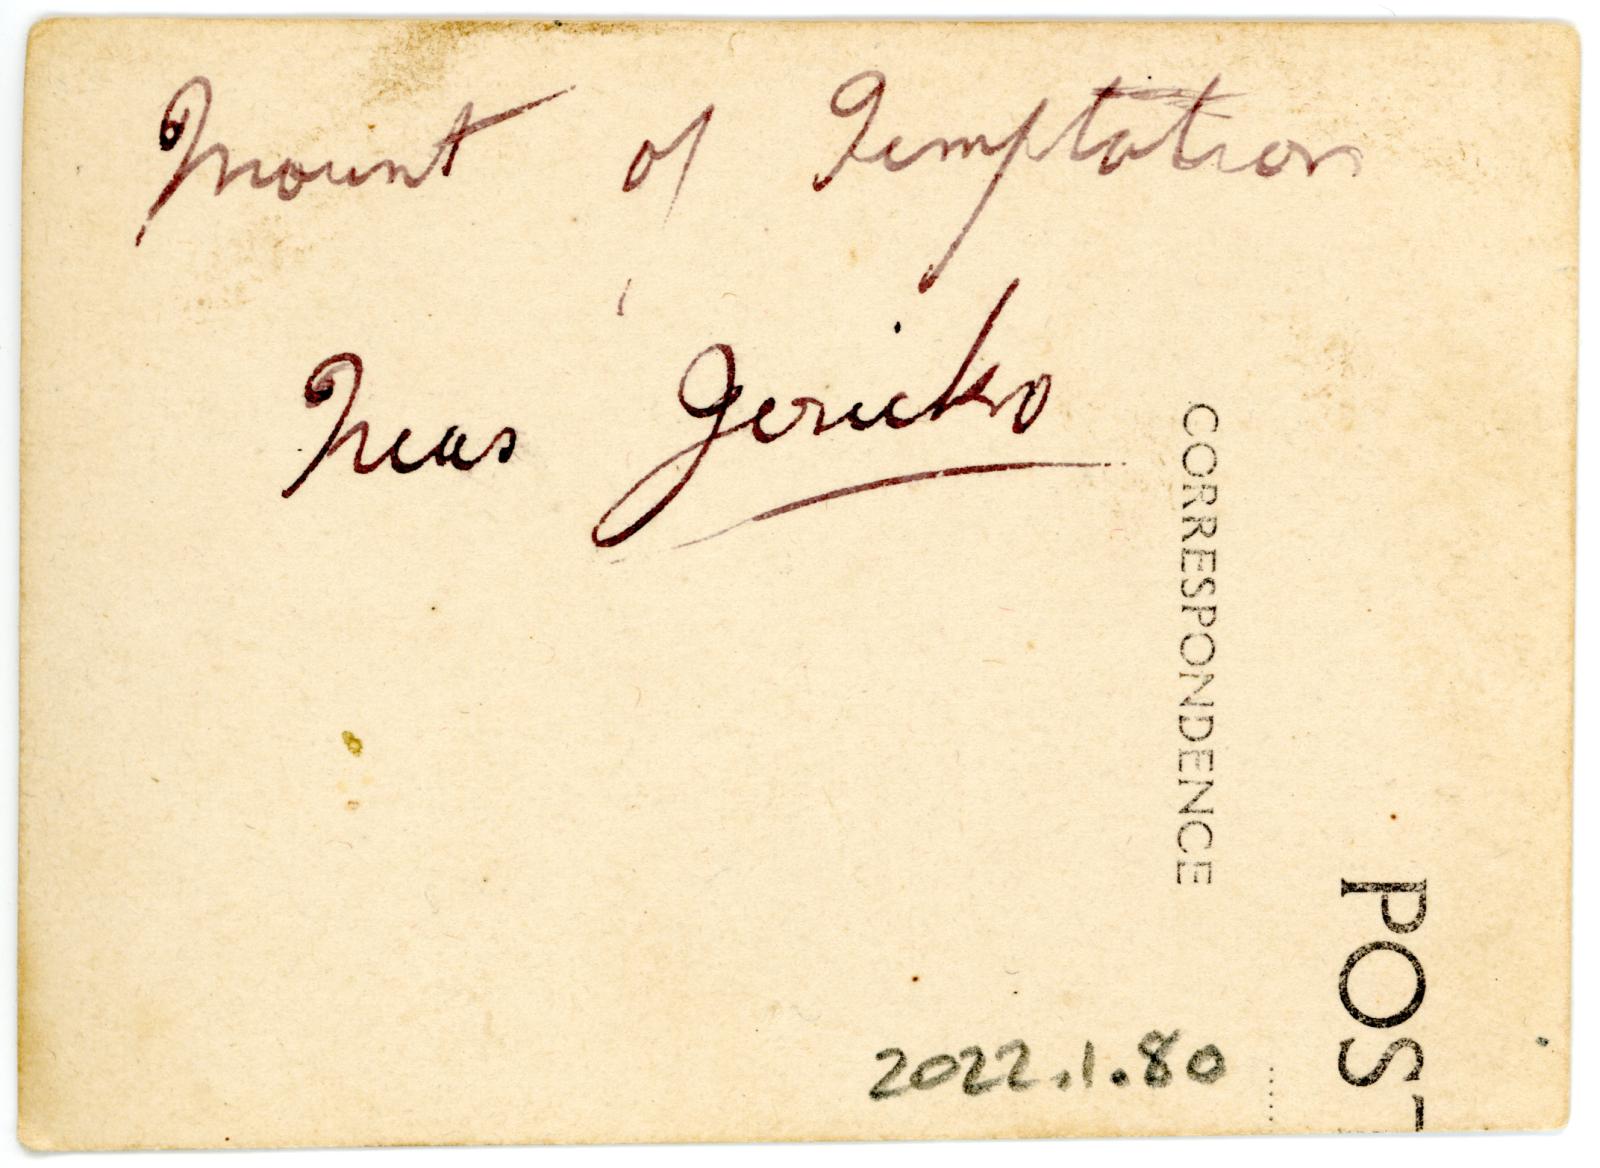 Mount of Temptation
Near Jericho
CORRESPONDENCE
POST
2022.1.80